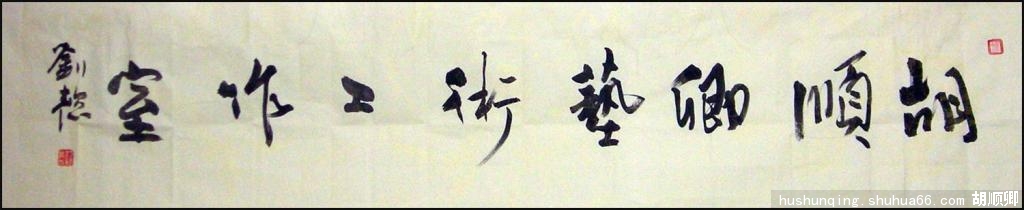 胡順卿藝術工作室
劉
hushunqing.shuhua66.com 胡顺卿